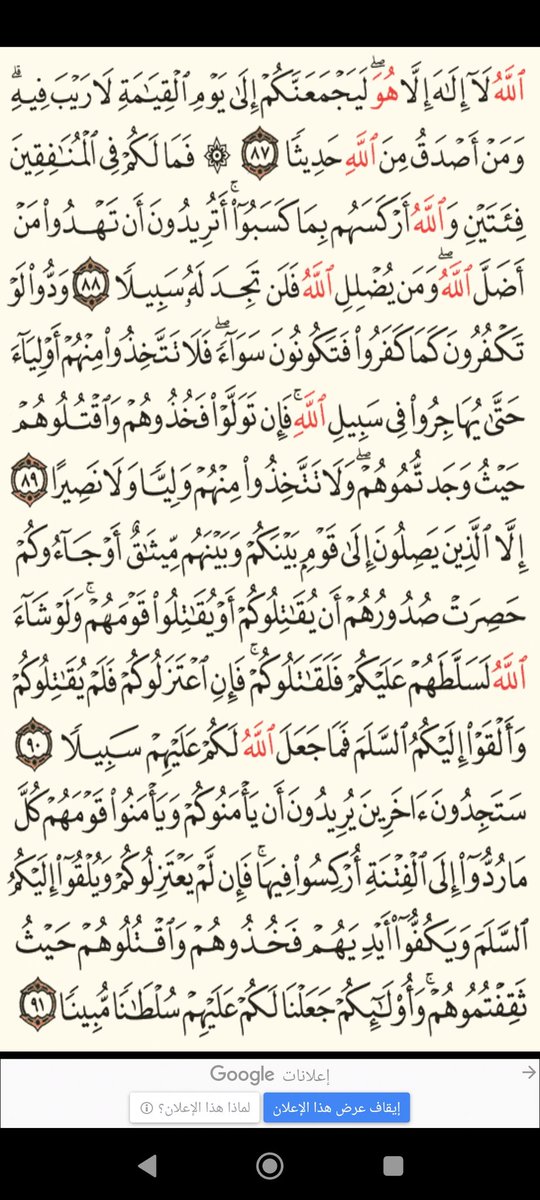 ٱللَّهُ لَآ إِلَٰهَ إِلَّا هُوَۖ لَيَجۡمَعَنَّكُمۡ إِلَىٰ يَوۡمِ ٱلۡقِيَٰمَةِ لَا رَيۡبَ فِيهِۗ
وَمَنۡ أَصۡدَقُ مِنَ ٱللَّهِ حَدِيثٗا ٨٧ ۞ فَمَا لَكُمۡ فِي ٱلۡمُنَٰفِقِينَ
فِئَتَيۡنِ وَٱللَّهُ أَرۡكَسَهُم بِمَا كَسَبُوٓاْۚ أَتُرِيدُونَ أَن تَهۡدُواْ مَنۡ
أَضَلَّ ٱللَّهُۖ وَمَن يُضۡلِلِ ٱللَّهُ فَلَن تَجِدَ لَهُۥ سَبِيلٗا ٨٨ وَدُّواْ لَوۡ
تَكۡفُرُونَ كَمَا كَفَرُواْ فَتَكُونُونَ سَوَآءٗۖ فَلَا تَتَّخِذُواْ مِنۡهُمۡ أَوۡلِيَآءَ
حَتَّىٰ يُهَاجِرُواْ فِي سَبِيلِ ٱللَّهِۚ فَإِن تَوَلَّوۡاْ فَخُذُوهُمۡ وَٱقۡتُلُوهُمۡ
حَيۡثُ وَجَدتُّمُوهُمۡۖ وَلَا تَتَّخِذُواْ مِنۡهُمۡ وَلِيّٗا وَلَا نَصِيرًا ٨٩
إِلَّا ٱلَّذِينَ يَصِلُونَ إِلَىٰ قَوۡمِۭ بَيۡنَكُمۡ وَبَيۡنَهُم مِّيثَٰقٌ أَوۡ جَآءُوكُمۡ
حَصِرَتۡ صُدُورُهُمۡ أَن يُقَٰتِلُوكُمۡ أَوۡ يُقَٰتِلُواْ قَوۡمَهُمۡۚ وَلَوۡ شَآءَ
ٱللَّهُ لَسَلَّطَهُمۡ عَلَيۡكُمۡ فَلَقَٰتَلُوكُمۡۚ فَإِنِ ٱعۡتَزَلُوكُمۡ فَلَمۡ يُقَٰتِلُوكُمۡ
وَأَلۡقَوۡاْ إِلَيۡكُمُ ٱلسَّلَمَ فَمَا جَعَلَ ٱللَّهُ لَكُمۡ عَلَيۡهِمۡ سَبِيلٗا ٩٠
سَتَجِدُونَ ءَاخَرِينَ يُرِيدُونَ أَن يَأۡمَنُوكُمۡ وَيَأۡمَنُواْ قَوۡمَهُمۡ كُلَّ
مَا رُدُّوٓاْ إِلَى ٱلۡفِتۡنَةِ أُرۡكِسُواْ فِيهَاۚ فَإِن لَّمۡ يَعۡتَزِلُوكُمۡ وَيُلۡقُوٓاْ إِلَيۡكُمُ
ٱلسَّلَمَ وَيَكُفُّوٓاْ أَيۡدِيَهُمۡ فَخُذُوهُمۡ وَٱقۡتُلُوهُمۡ حَيۡثُ
ثَقِفۡتُمُوهُمۡۚ وَأُوْلَٰٓئِكُمۡ جَعَلۡنَا لَكُمۡ عَلَيۡهِمۡ سُلۡطَٰنٗا مُّبِينٗا ٩١
إعلانات Google
إيقاف عرض هذا الإعلان
لماذا هذا الإعلان؟